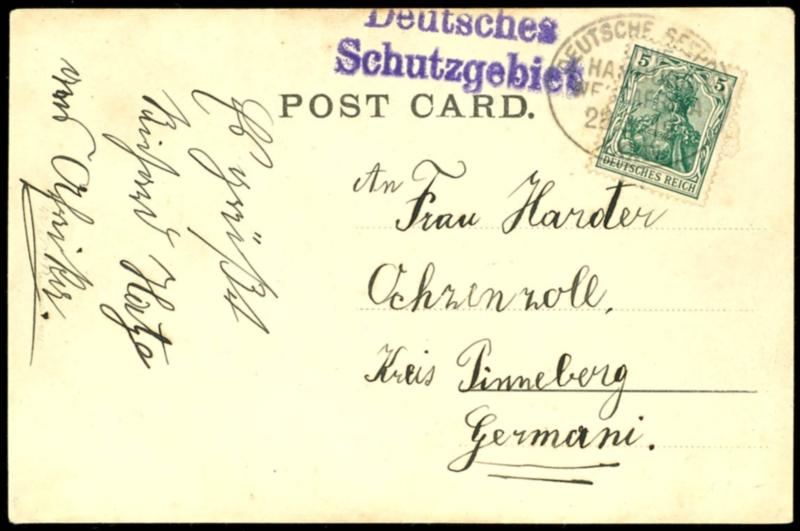 Deutsches
Schutzgebiet
DEUTSCHE
5 5
DEUTSCHES REICH
POST CARD.
An
Frau Harder
Ochzenzoll,
Kreis Pinneberg
Germani.
Es grüßt
von Afrika.